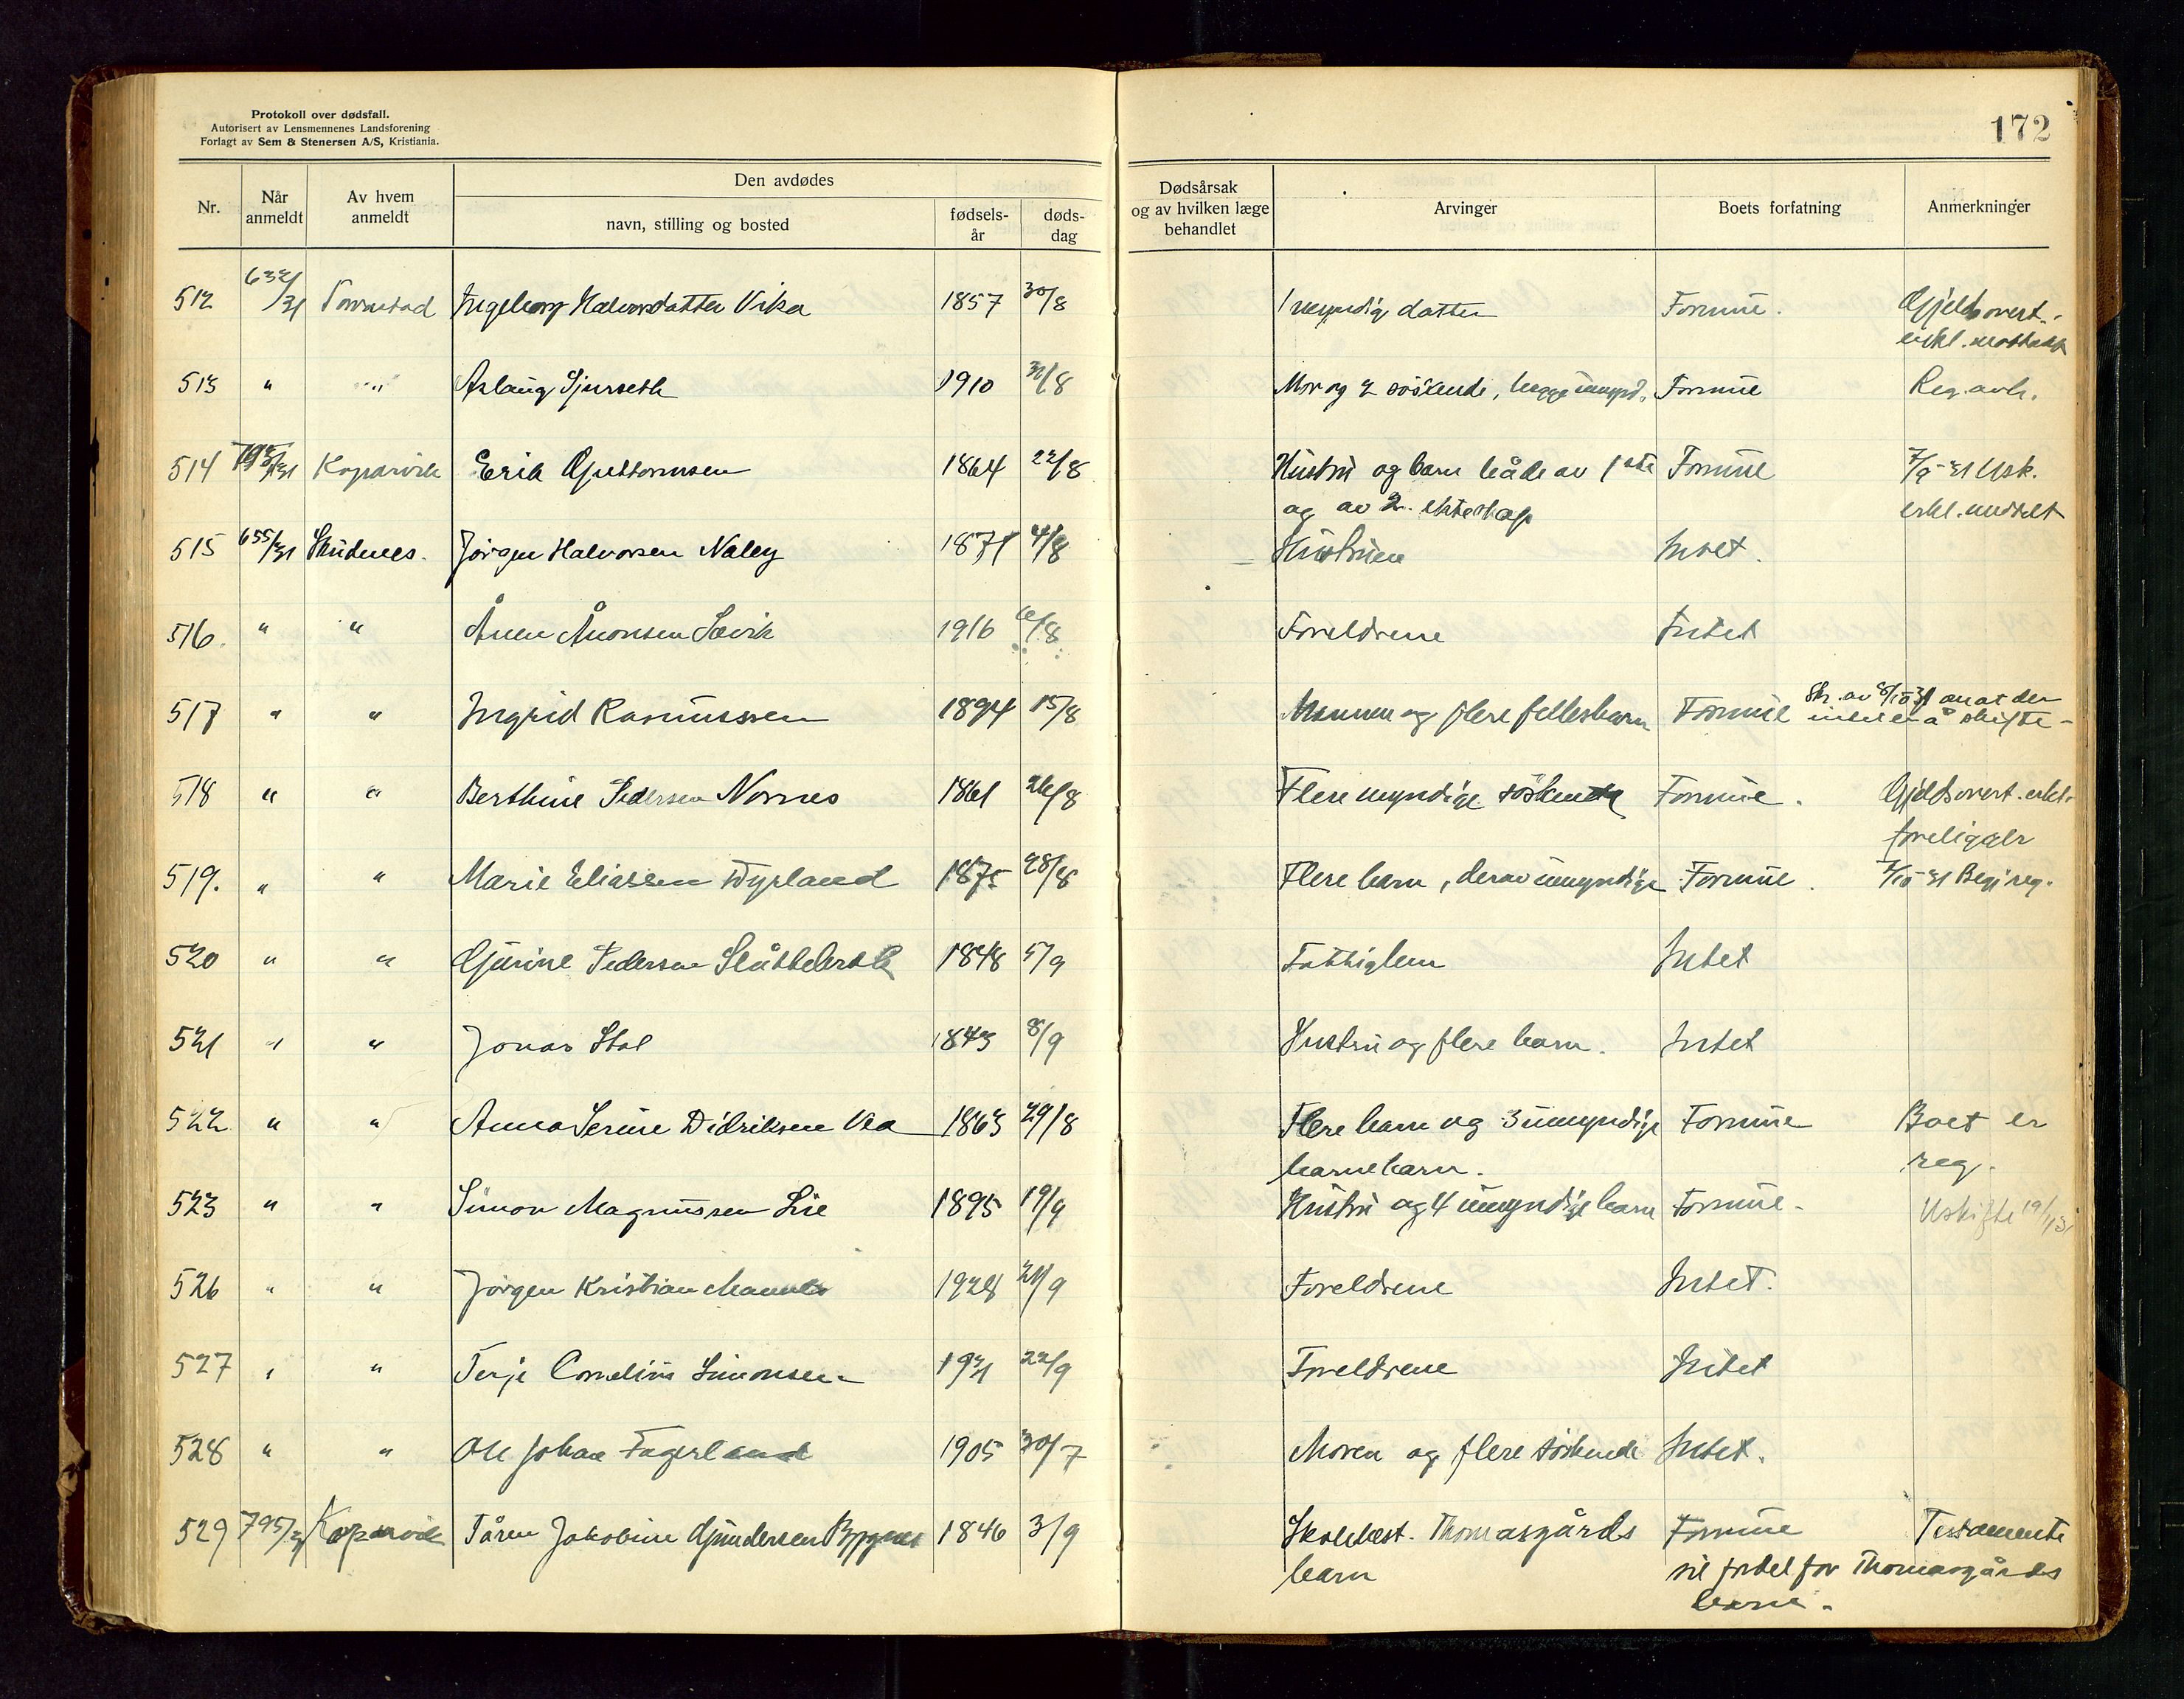 Protokoll over dødsfall.
Autorisert av Lensmennenes Landsforening
Forlagt av Sem & Stenersen A/S, Kristiania.
172
Nr. Når anmeldt Av hvem anmeldt Den avdødes navn, stilling og bosted fødselsår dødsdag Dødsårsak og av hvilken læge behandlet Arvinger Boets forfatning Anmerkninger
512 632/31 Torvastad Ingeborg Halvorsdatter Vika 1857 30/8 1 myndig datter Formue. Gjeldsovert.-
erkl. mottatt
513 " " Aslaug Sjurseth 1910 31/8 Mor og 2 söskende, begge umynd. Formue Reg. avh.
514 Kopervik Erik Guttormsen 1864 22/8 Hustru og barn både av 1ste Formue 7/9-31 Usk.
og av 2. ekteskap erkl. meddelt
515 655/31 Skudenes. Jörgen Halvorsen Naley 1871 4/8 Hustruen Intet.
516. " " Ånen Ånonsen Sævik 1916 10/8 Foreldrene Intet
517 " " Ingrid Rasmussen 1894 15/8 Mannen og flere fellesbarn Formue Skr. av 8/10 31 om at der
intet er å skifte -
518 " " Berthine Pedersen Nornes 1861 26/8 Flere myndige söskende Formue. Gjeldsovert. erkl.
foreligger
519. " " Marie Eliassen Dyrland 1875 28/8 Flere barn, derav umyndige Formue. 7/10-31 Begj reg.
520 " " Gurine Pedersen Slåttebrekk 1848 5/9 Fattiglem Intet
521 " " Jonas Stol 1843 8/9 Hustru og flere barn. Intet
522 " " Anna Serine Didriksen Vea 1863 29/8 Flere barn og 3 umyndige Formue Boet er
barnebarn. reg.
523 " " Simon Magnussen Lie 1895 19/9 Hustru og 4 umyndige barn Formue- Uskifte
526 " " Jörgen Kristian Mannes 1928 21/9 Foreldrene Intet.
527 " " Terje Cornelius Simonsen 1931 22/9 Foreldrene Intet
528 " " Ole Johan Fagerland 1905 30/7 Moren og flere söskende Intet.
529 795/31 Kopervik Tåren Jakobine Gundersen Bygnes 1846 3/9 Skolebest. Thomasgårds Formue Testamente
barn til fordel for Thomasgårds
barn.